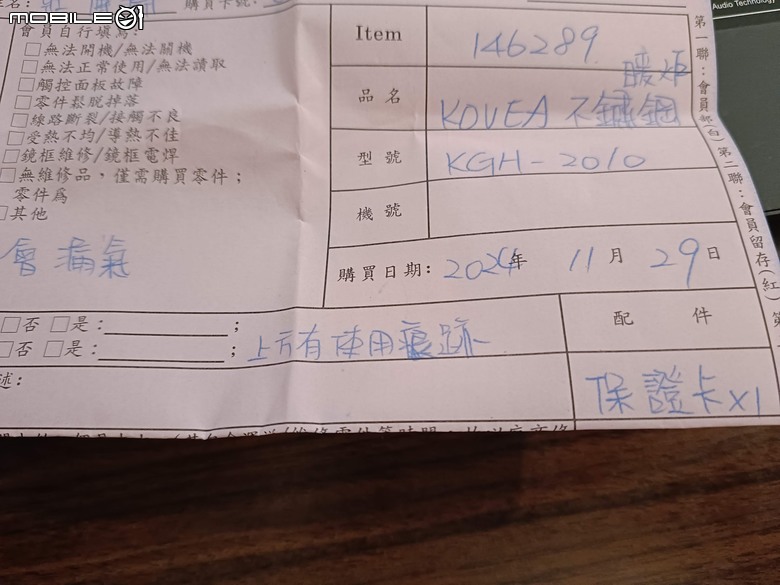 MOBILE01
Audio Technology
購買卡號:
會員自行填寫:
□無法開機/無法關機
□無法正常使用/無法讀取
□觸控面板故障
□零件鬆脫掉落
□線路斷裂/接觸不良
□受熱不均/導熱不佳
□鏡框維修/鏡框電焊
□無維修品,僅需購買零件;
零件為
□其他
會漏氣
Item
146289
品名
KOVEA 不鏽鋼
暖爐
型號
KGH-2010
機號
購買日期: 2024年 11月 29日
□否 □是: ;
□否 □是: ;
上方有使用痕跡
配 件
述:
保證卡x1
第一聯:會員
(白)
第二聯:會員留存(紅)